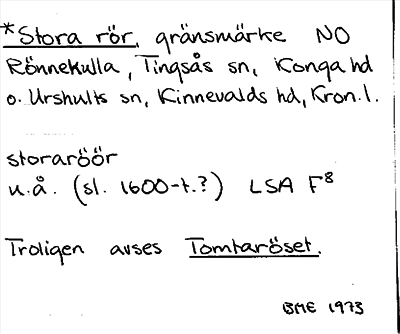 *Stora rör, gränsmärke NO
Rönnekulla, Tingsås sn, Konga hd
o. Urshults sn, Kinnevalds hd, Kron. l.
storaröör
u.å. (sl. 1600-t.?) LSA F8
Troligen avses Tomtaröset.
BME 1973